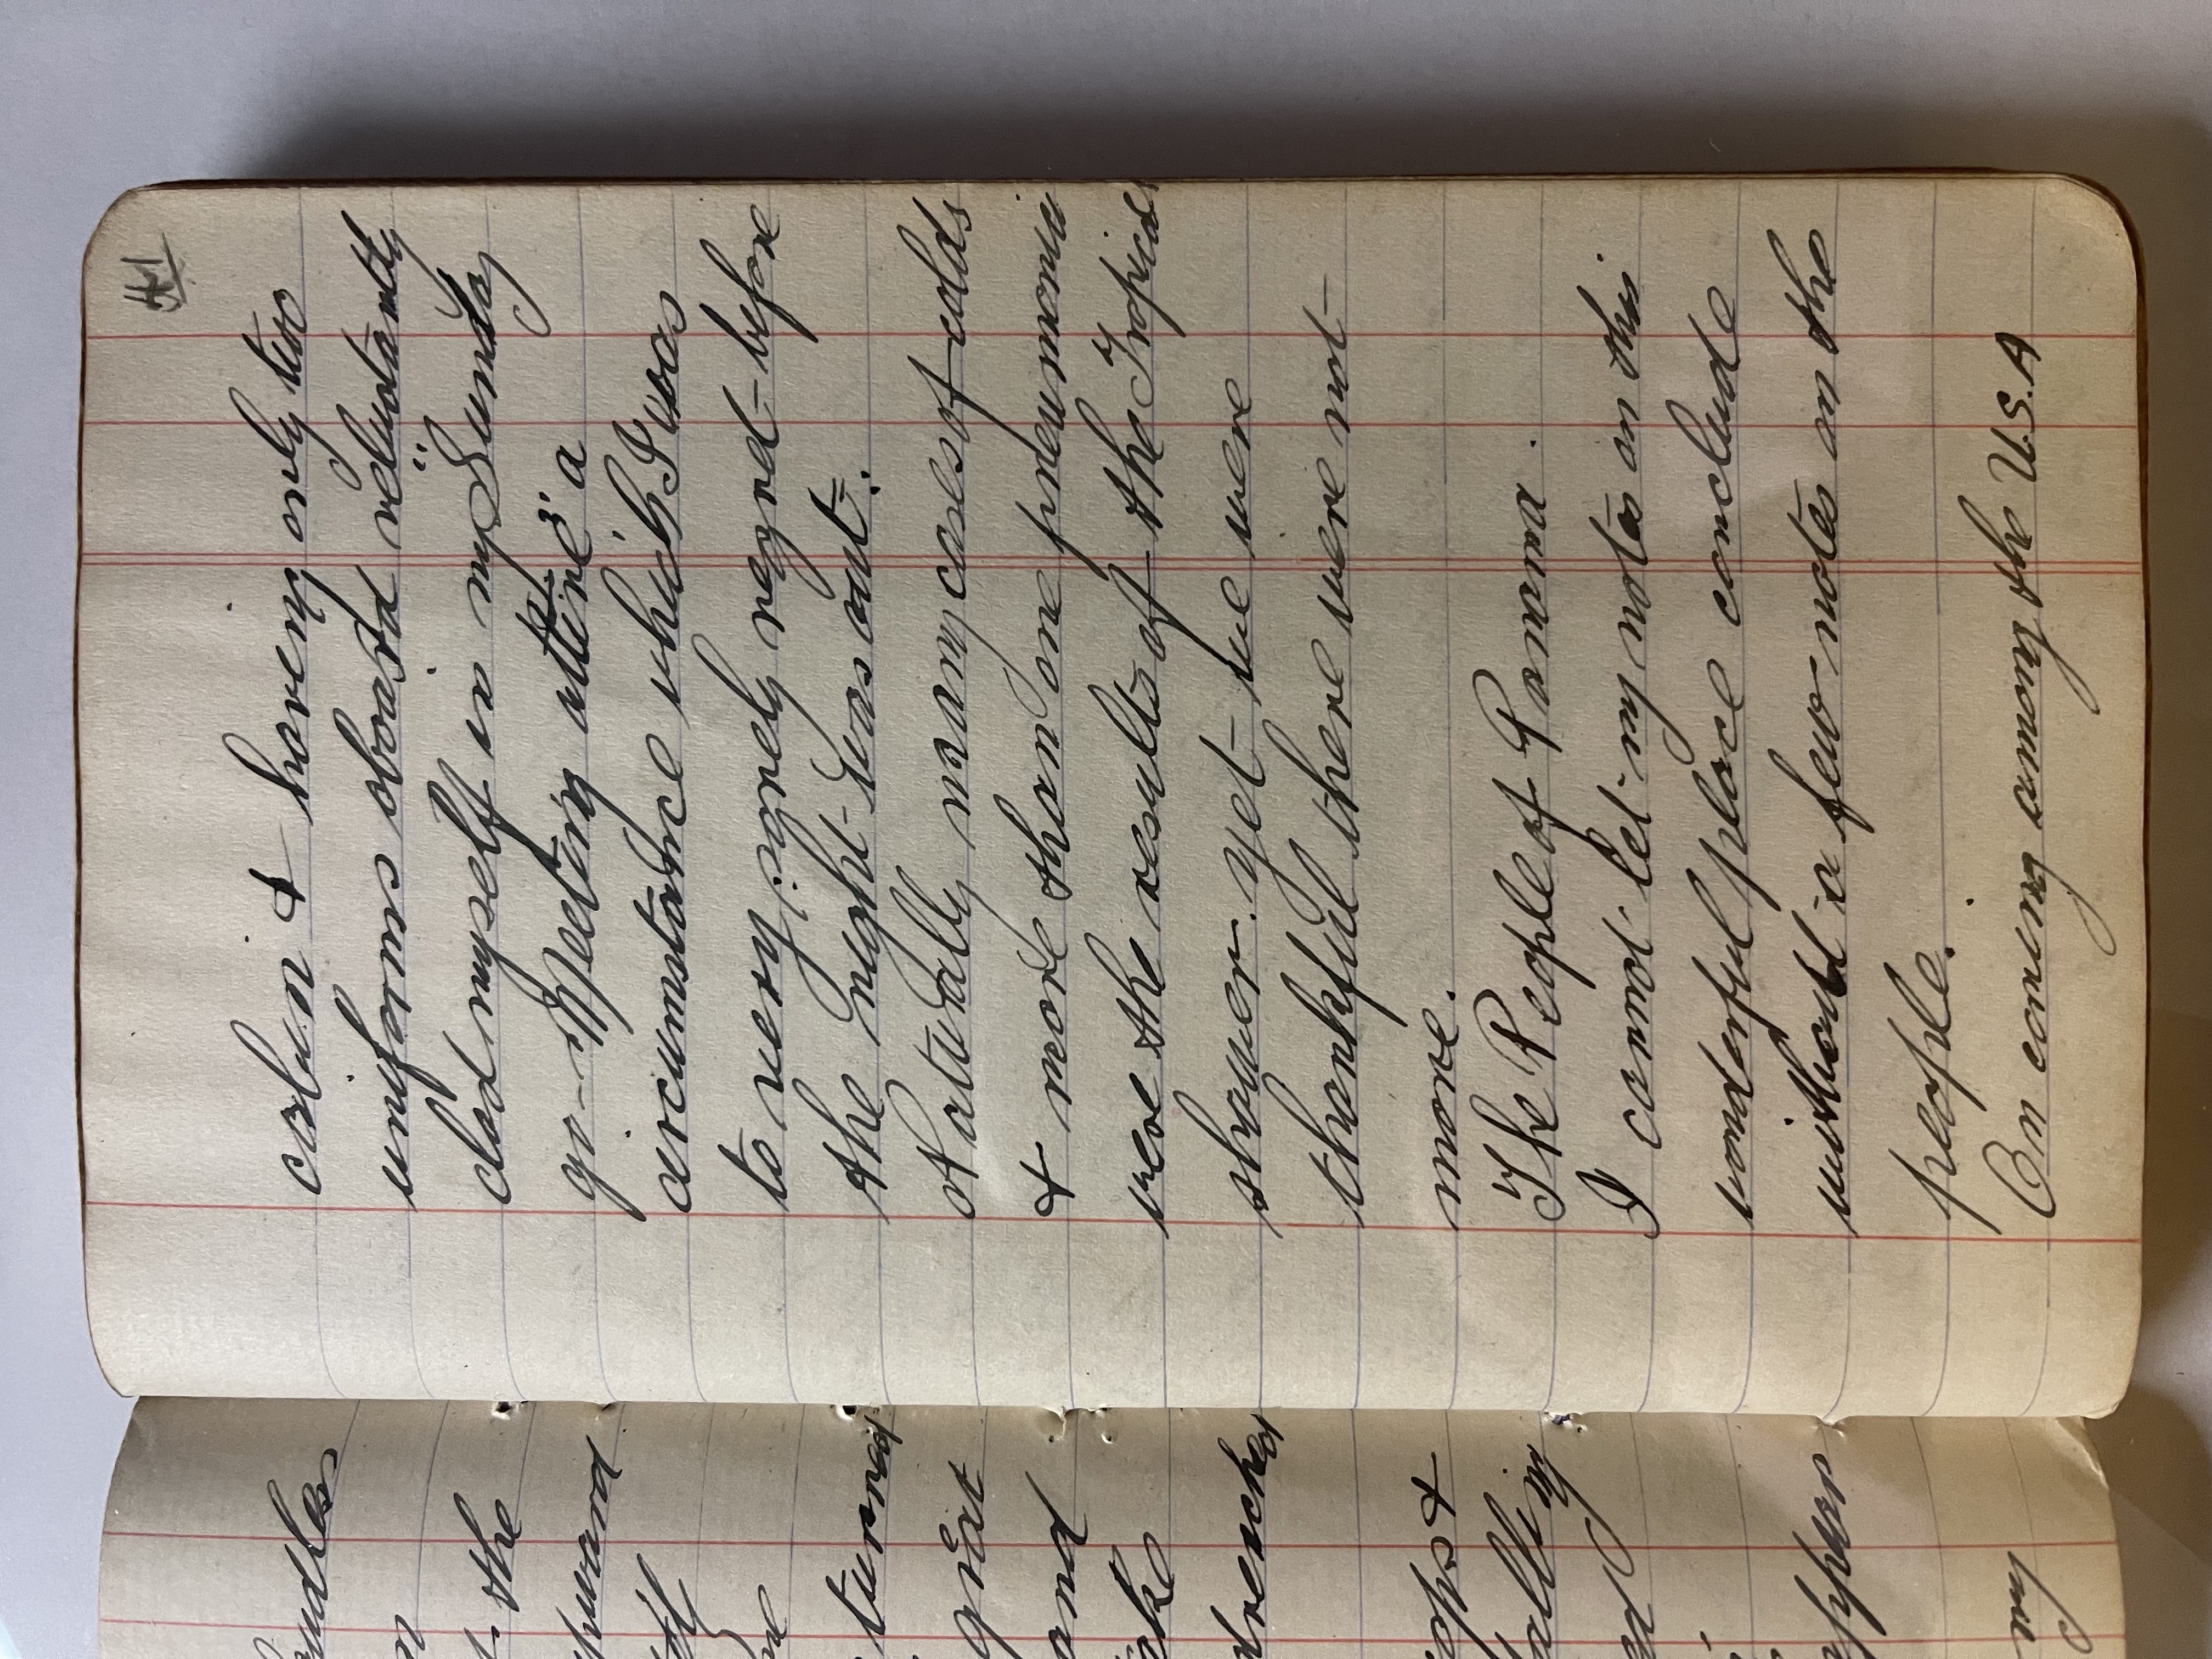 41
cabin & having only two
uniforms aboard reluctantly
clad myself in my "Sunday
go-Meeting attire" a
circumstance which I was
to very sorely regret before
the night was out.
Naturally many cases of colds
& more than one pneumonia
were the results of the Tropical
shower. yet we were
thankful there were not
more.
The People of Panama.
I cannot let my notes on this
wonderful place conclude
without a few notes on the
people.
On coming among the U.S.A
the
turned
great
and
drenched
&
my